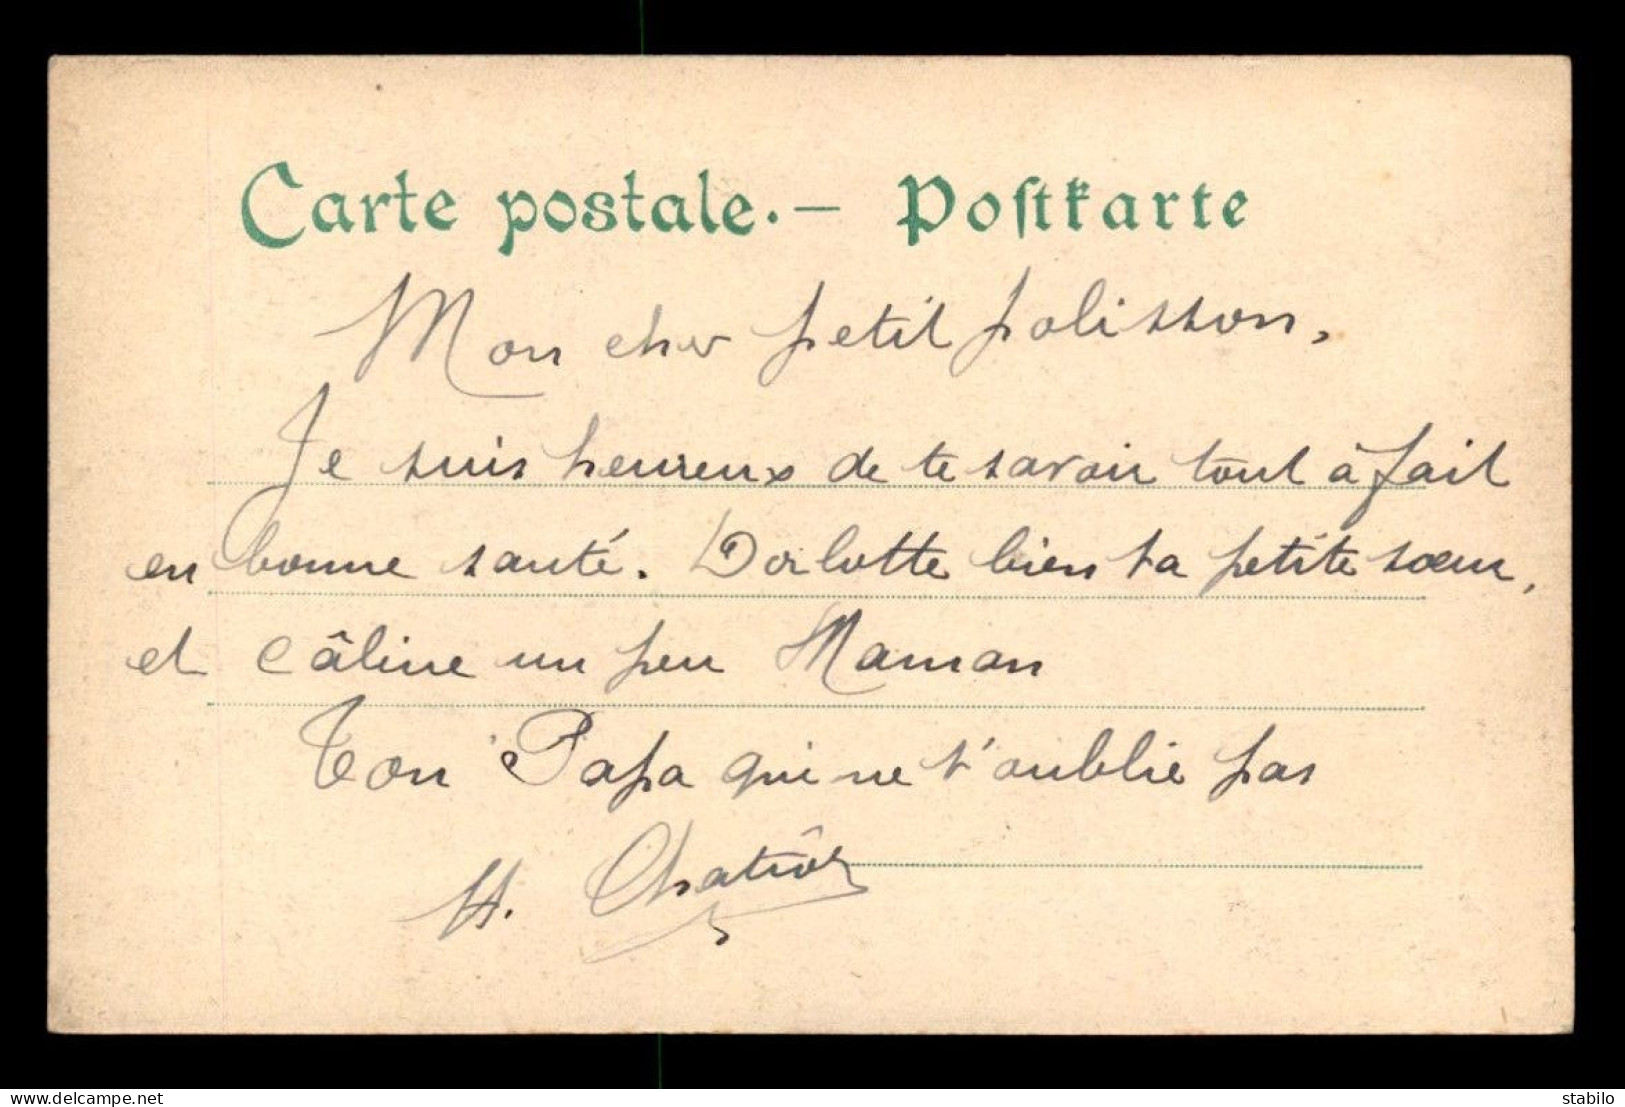 Carte postale. — Postkarte
Mon cher petit polisson,
Je suis heureux de te savoir tout à fait
en bonne santé. Dorlotte bien ta petite sœur,
et câline un peu Maman
Ton Papa qui ne t'oublie pas
H.
delcampe.net
stabilo